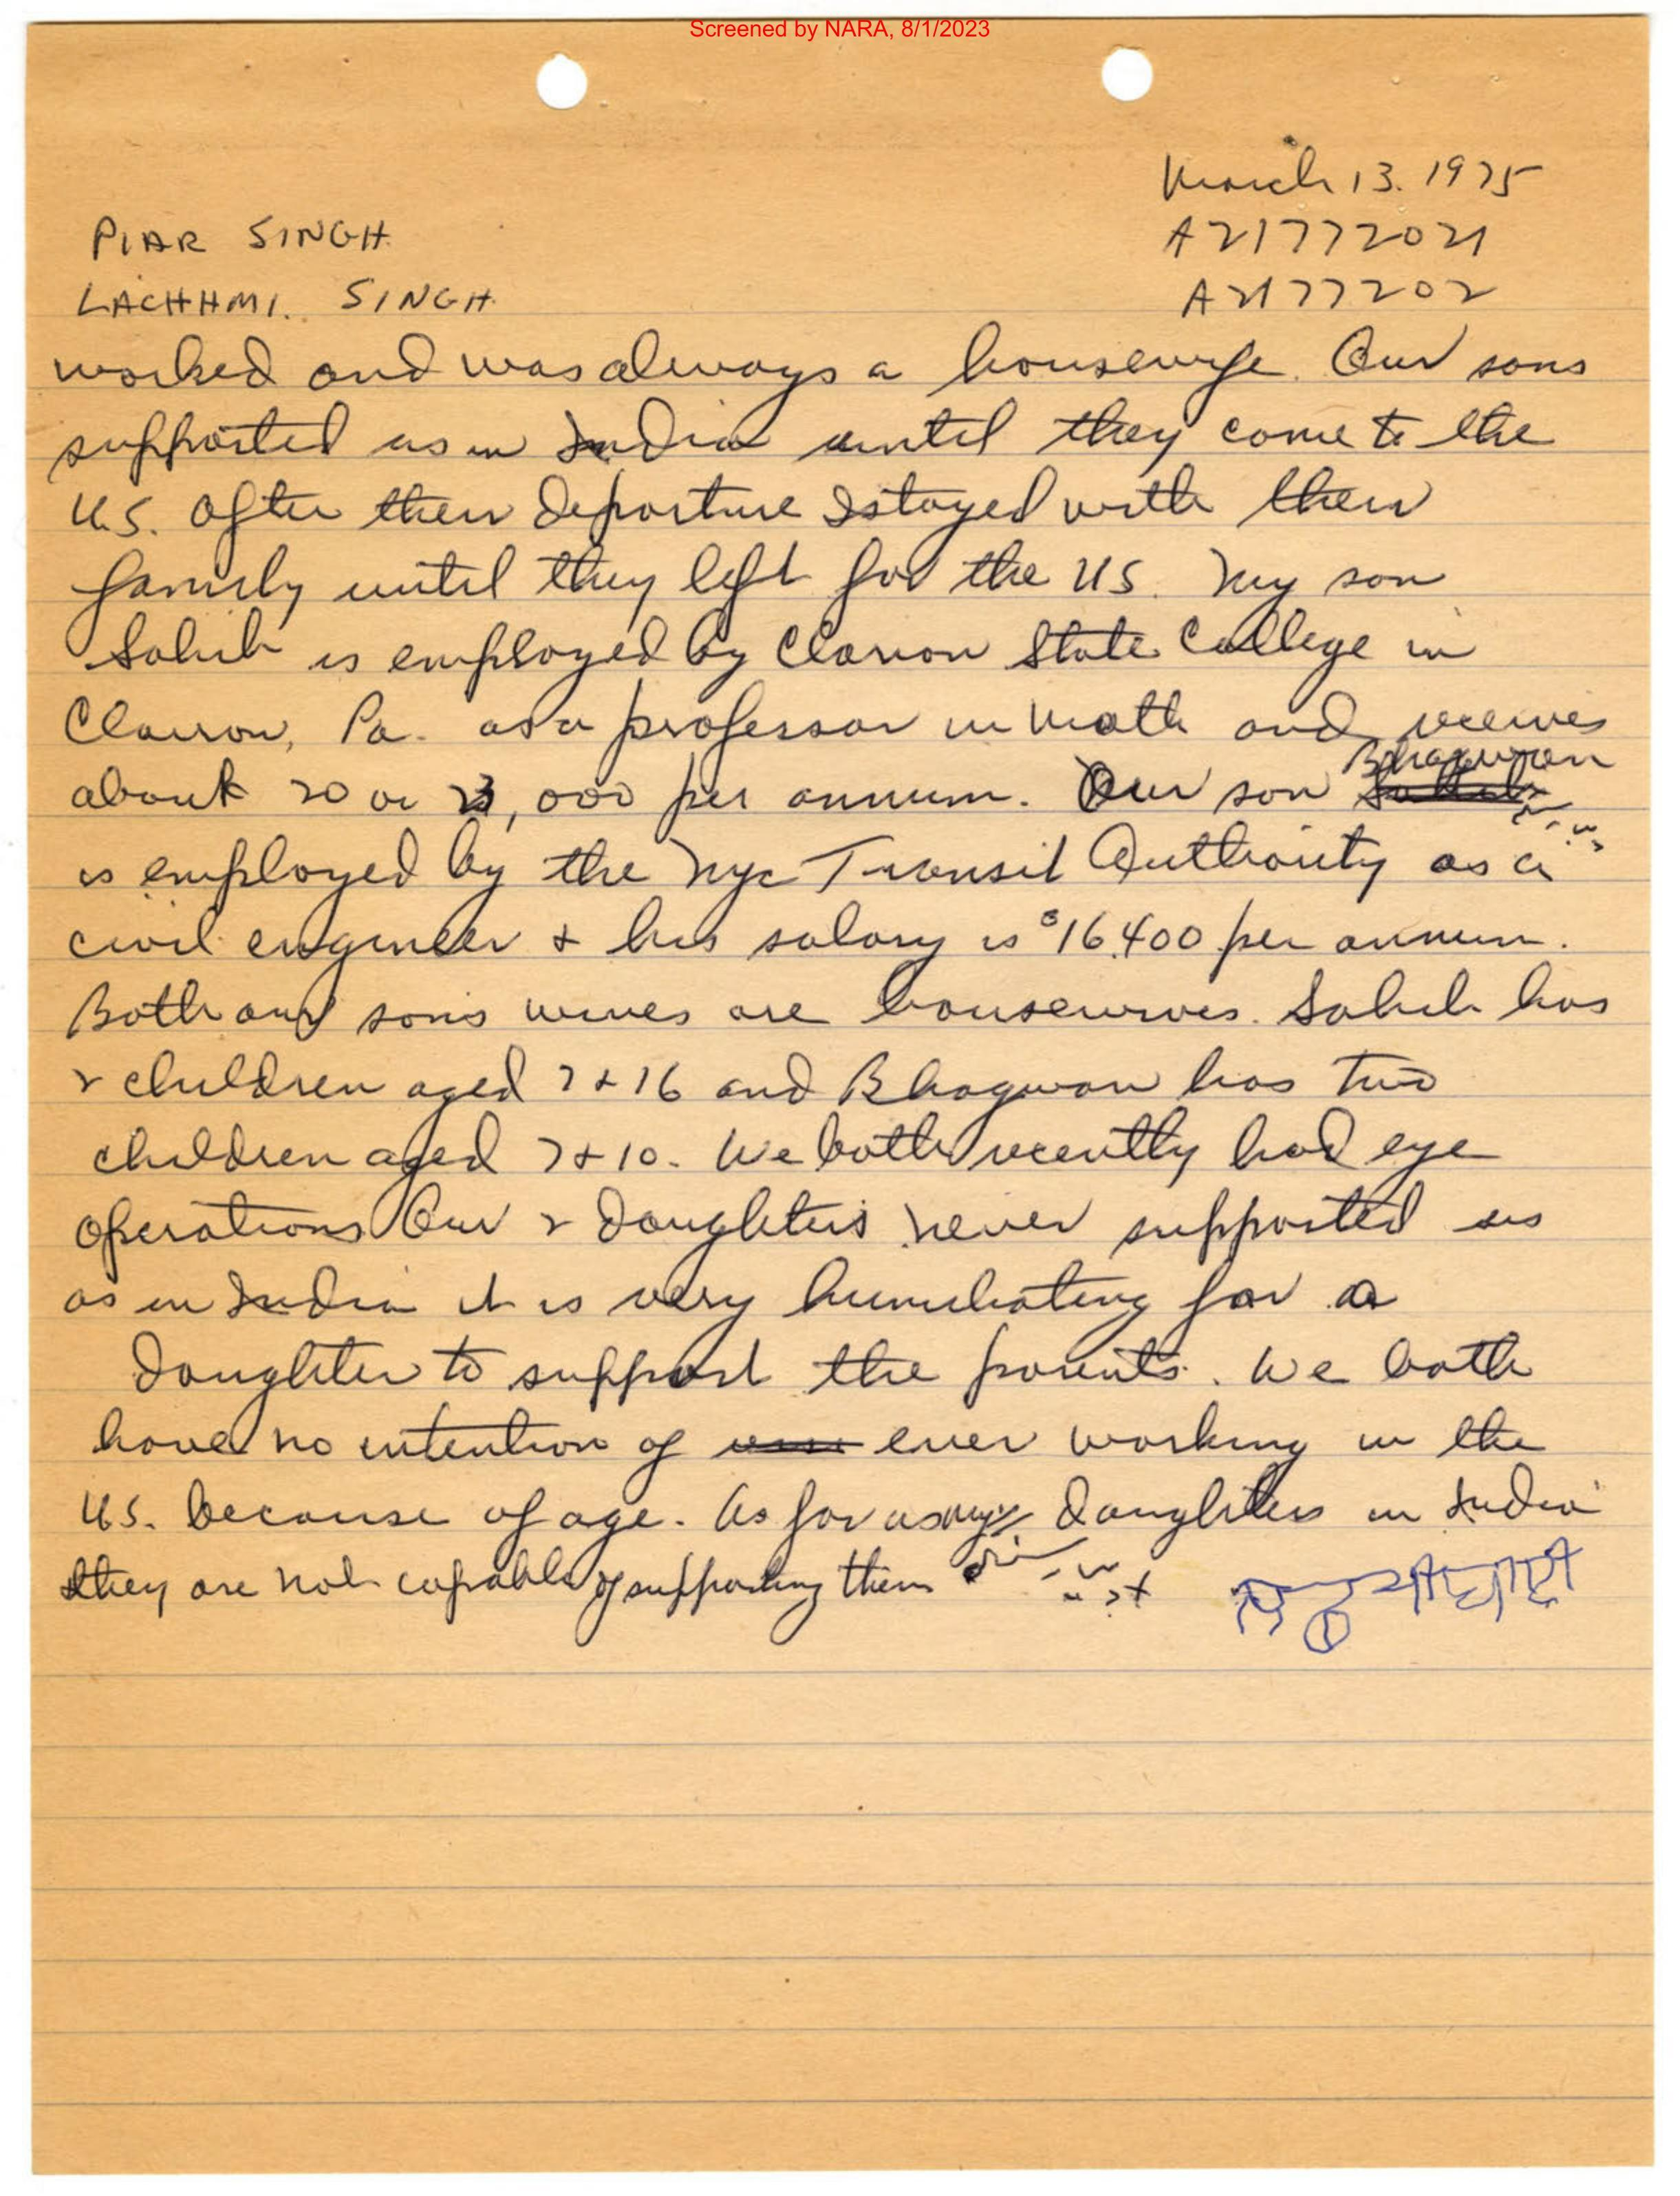 Screened by NARA, 8/1/2023
March 13. 1975
PIAR SINGH. A21772021
LACHHMI. SINGH. A2177202
worked and was always a housewife. Our sons
supported us in India until they come to the
U.S. After their departure I stayed with their
family until they left for the US. My son
Sahib is employed by Clarion State College in
Clarion, Pa. as a professor in Math and receives
about 20 or 23,000 per annum. Our son Bhagwan
is employed by the Nyc Transit Authority as a
civil engineer & his salary is $16,400 per annum.
Both our sons wives are housewives. Sahib has
2 children aged 7 & 16 and Bhagwan has two
children aged 7 & 10. We both recently had eye
operations Our 2 daughters never supported us
as in India it is very humiliating for a
daughter to support the parents. We both
have no intention of ever working in the
U.S. because of age. As far as my daughters in India
they are not capable of supporting them